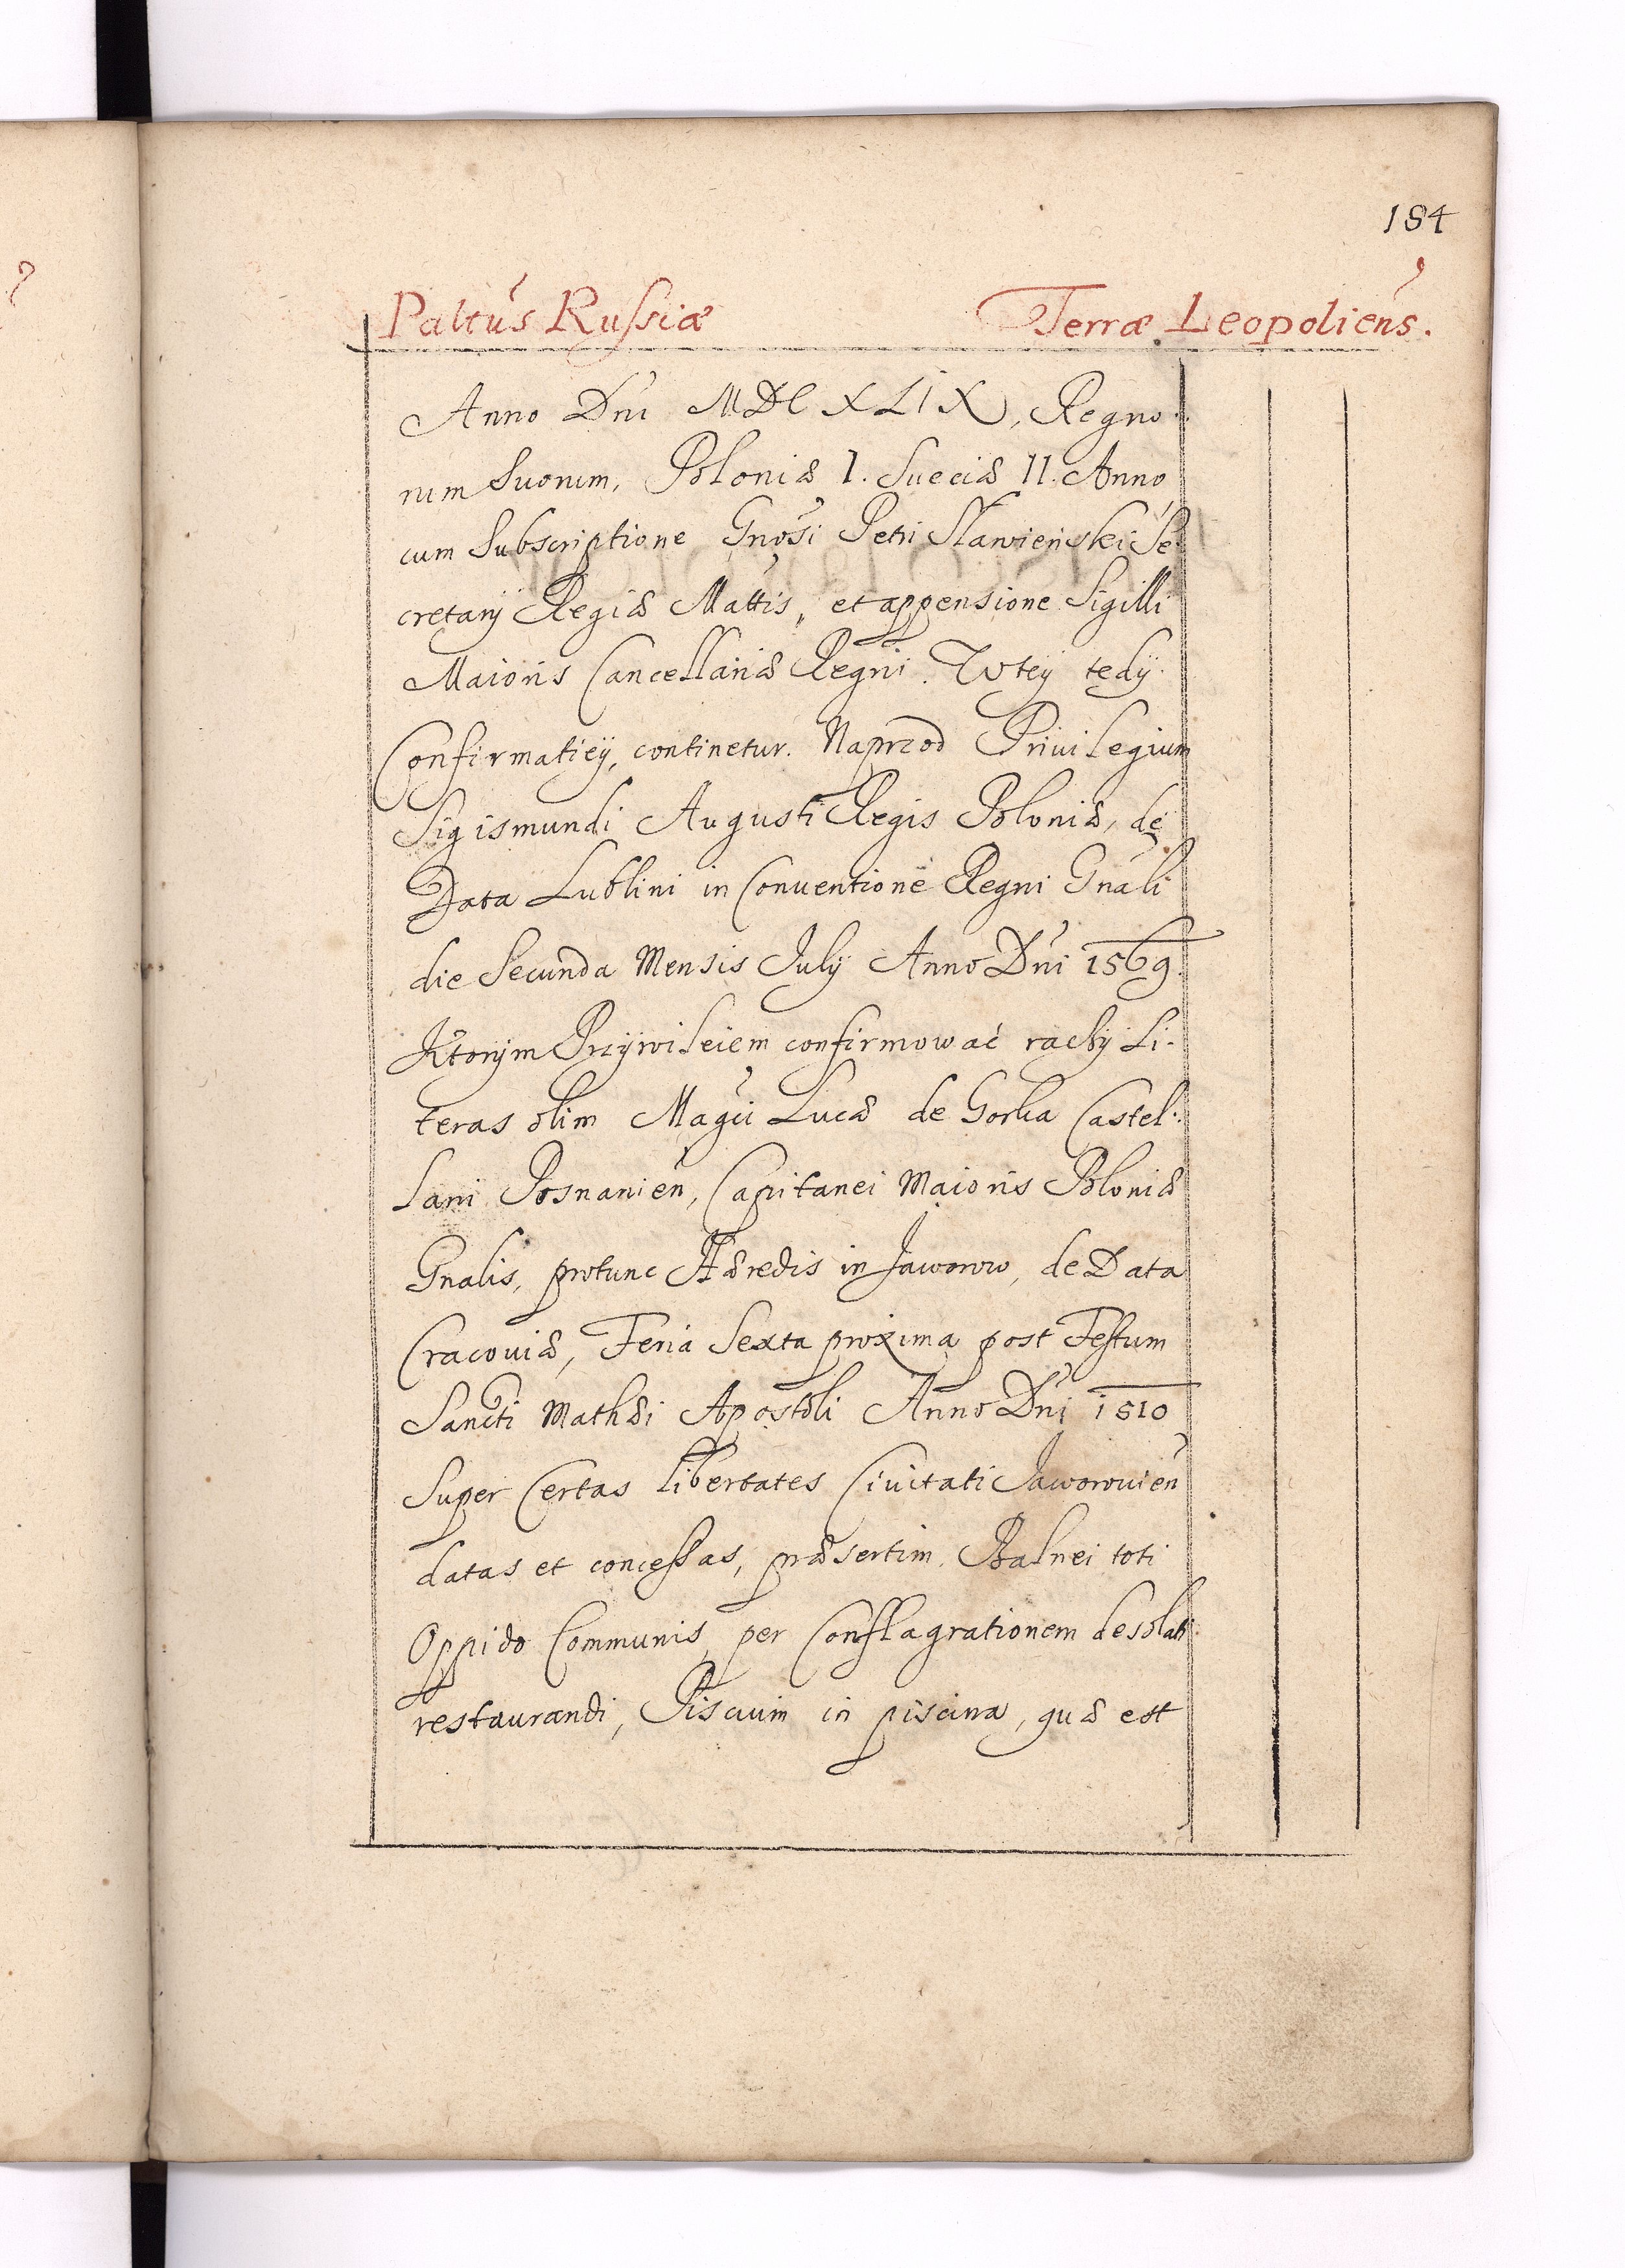 184
Paltus Russiæ Terræ Leopoliens.
Anno Dni MDCXLIX, Regno
rum Suorum, Poloniæ I. Sueciæ II. Anno
cum Subscriptione Gnosi Petri Sławieński Se
cretarÿ Regiæ Mattis, et appensione Sigilli
Maioris Cancellariæ Regni. W teÿ tedÿ
Confirmatieÿ, continetur. Naprzod Priuilegium
Sigismundi Augusti Regis Poloniæ, de
Data Lublini in Conuentione Regni Gnali
die Secunda Mensis Julÿ Anno Dni 1569.
Ktorÿm Przÿwileiem confirmować raczÿ Li-
teras olim Magci Lucæ de Gorka Castel-
lani Posnanien, Capitanei Maioris Poloniæ
Gnalis, protunc Hæredis in Jaworow, de Data
Cracouiæ, Feria Sexta proxima post Festum
Sancti Mathæi Apostoli Anno Dni 1510
Super Certas libertates Ciuitati Jaworouien
datas et concessas, præsertim Balnei toti
Oppido Communis, per Conflagrationem desolati
restaurandi, Piscium in piscina, quæ est